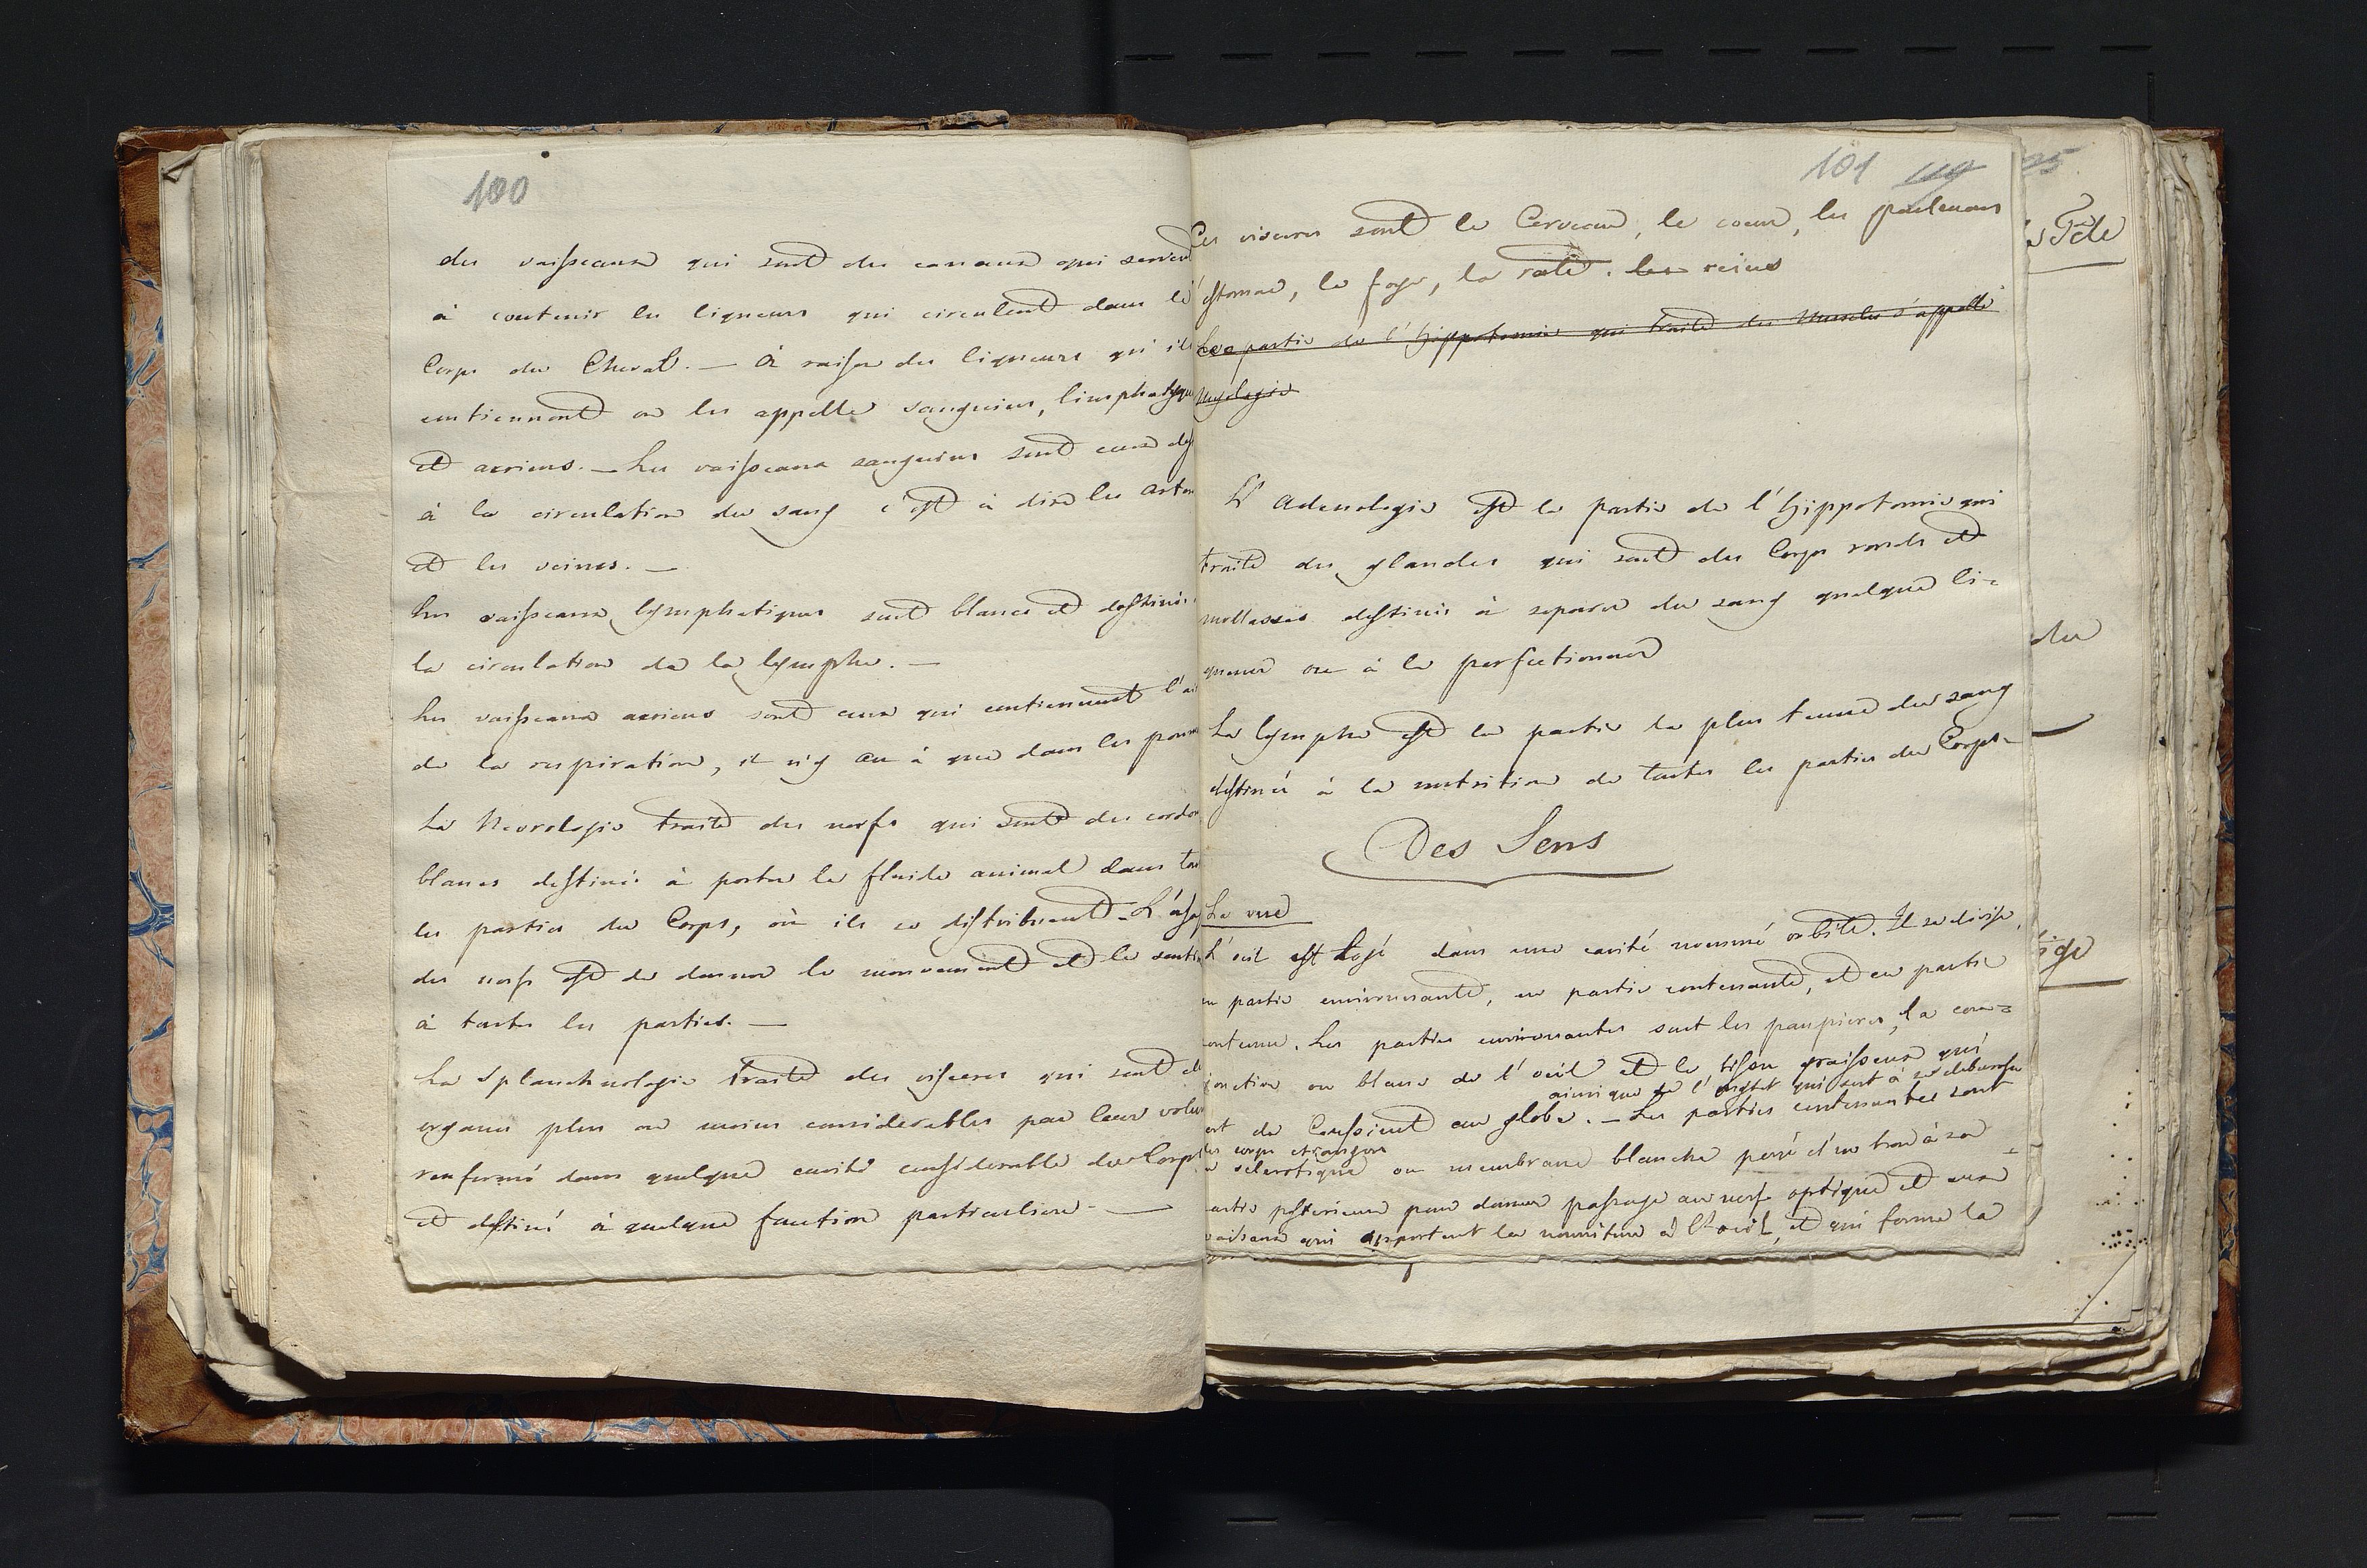 100
des vaisseaux qui sont des canaux qui servent
à contenir les liqueurs qui circulent dans le
Corps du Cheval. — à raison des liqueurs qu'ils
contiennent on les appelle sanguins, limphatyques
et aeriens. — Les vaisseaux sanguins sont ceux des
à la circulation du sang c'est à dire les arte
et les veines. —
Les vaisseaux lymphatiques sont blancs et destinés
la circulation de la lymphe. —
Les vaisseaux aeriens sont ceux qui contiennent l'ai
de la respiration, il n'y en à que dans les poum
La Nevrologie traite des nerfs qui sont des cordon
blancs destinés à porter le fluide animal dans tou
les parties du Corps, où ils se distribuent. L'usag
des nerfs est de donner le mouvement et le senti
à toutes les parties. —
La Splanchnologie traite des visceres qui sont de
organes plus ou moins considerables par leur volum
renfermé dans quelque cavité considerable du Corps
et destiné à quelque fonction particuliere. —
101
Ces visceres sont le Cerveau, le coeur, les poulmons
estomac, le foye, la rate. les reins
La partie de l'hippotomie qui traite des Muscles s'appelle
Myologie
L'Adenologie est la partie de l'hippotomie qui
traite des glandes qui sont des Corps ronds et
mollasses destinés à separer du sang quelque li-
queur ou à la perfectionner
La lymphe est la partie la plus tenue du sang
destiné à la nutrition de toutes les parties du Corps.
Des Sens
La vue
L'oeil est logé dans une cavité nommé orbite. Il se divise,
en partie environnante, en partie contenante, et en partie
contenue. Les parties environnantes sont les paupieres, la con-
jonction ou blanc de l'oeil et le tissu graisseux qui
ainsi que l'onglet qui sert à se debarrasser
ert de Coussinet au globe. — Les parties contenantes sont
des corps etrangers
a sclerotique ou membrane blanche percé d'un trou à sa
artie posterieure pour donner passage au nerf optique et aux
vaisseaux qui apportent la nourriture à l'oeil, et qui forme la
Tête
du
ige